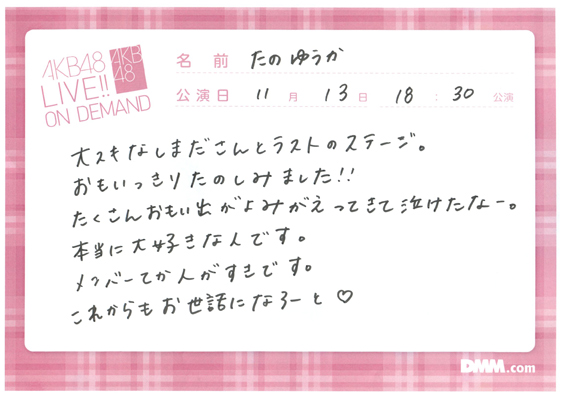 AKB48
LIVE!!
ON DEMAND
AKB
48
名前 たのゆうか
公演日 11月13日 18:30公演
大スキなしまださんとラストのステージ。
おもいっきりたのしみました!!
たくさんおもい出がよみがえってきて泣けたなー。
本当に大好きな人です。
メンバーてか人がすきです。
これからもお世話になろーと♡
DMM.com